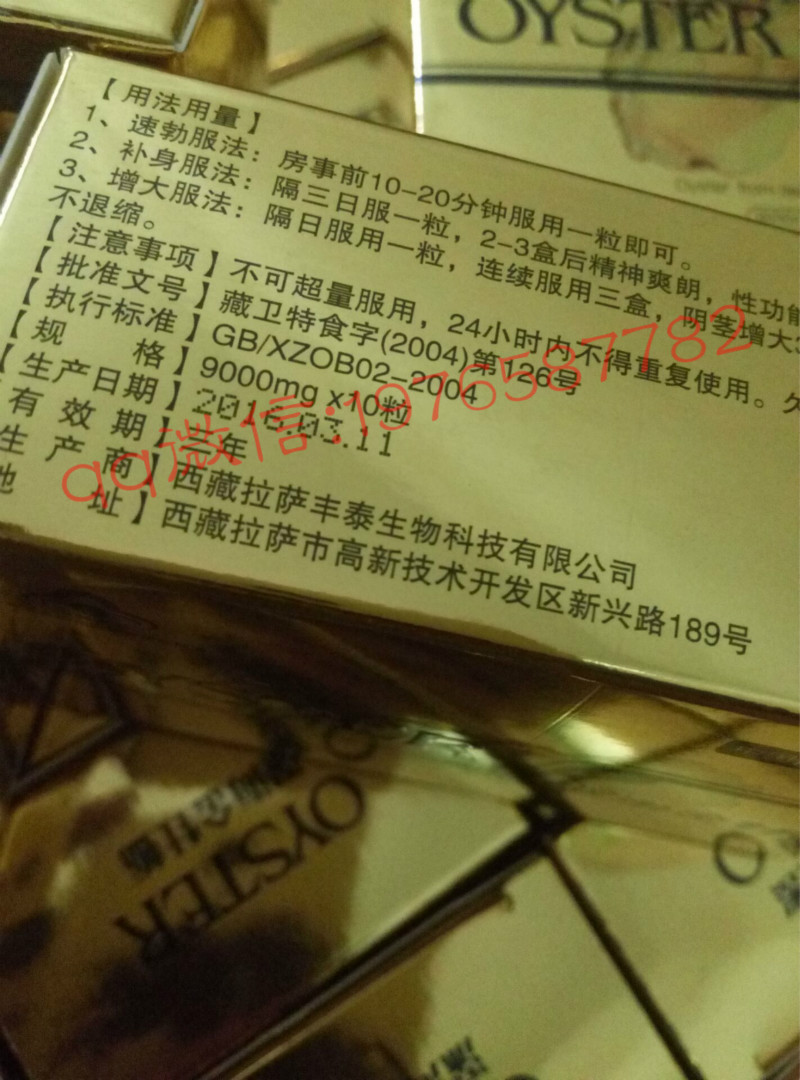 OYSTER
【用法用量】
1、速勃服法：房事前10-20分钟服用一粒即可。
2、补身服法：隔三日服一粒，2-3盒后精神爽朗，性功能
3、增大服法：隔日服用一粒，连续服用三盒，阴茎增大3
不退缩。
【注意事项】不可超量服用，24小时内不得重复使用。
【批准文号】藏卫特食字(2004)第126号
【执行标准】GB/XZOB02-2004
【规 格】9000mg x10粒
【生产日期】2016.03.11
有 效 期】三年
生 产 商】西藏拉萨丰泰生物科技有限公司
地 址】西藏拉萨市高新技术开发区新兴路189号
qq微信:1976587782
OYSTER